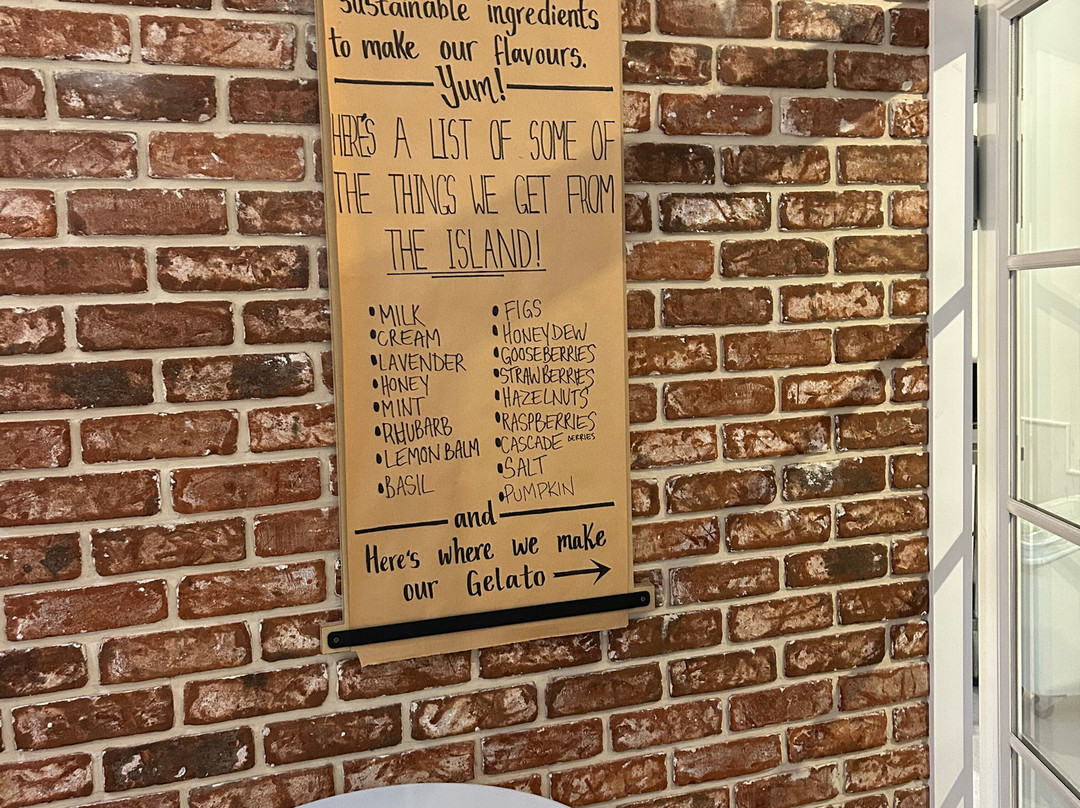 Sustainable ingredients
to make our flavours.
Yum!
HERE'S A LIST OF SOME OF
THE THINGS WE GET FROM
THE ISLAND!
• MILK
• CREAM
• LAVENDER
• HONEY
• MINT
• RHUBARB
• LEMON BALM
• BASIL
• FIGS
• HONEYDEW
• GOOSEBERRIES
• STRAWBERRIES
• HAZELNUTS
• RASPBERRIES
• CASCADE BERRIES
• SALT
• PUMPKIN
and
Here's where we make
our Gelato →